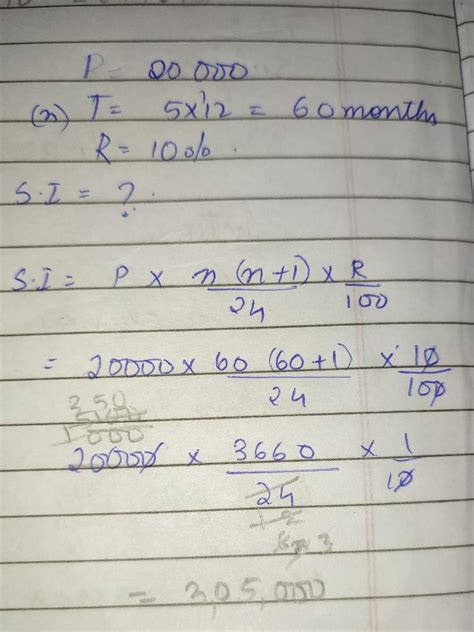 P = 20 000
(n) T = 5x12 = 60 months
R = 10%.
S.I = ?
S.I = P x n (n+1) / 24 x R / 100
= 20000 x 60 (60+1) / 24 x 10 / 100
1000
20000 x 3660 / 24 x 1 / 10
12
3
= 3,05,000